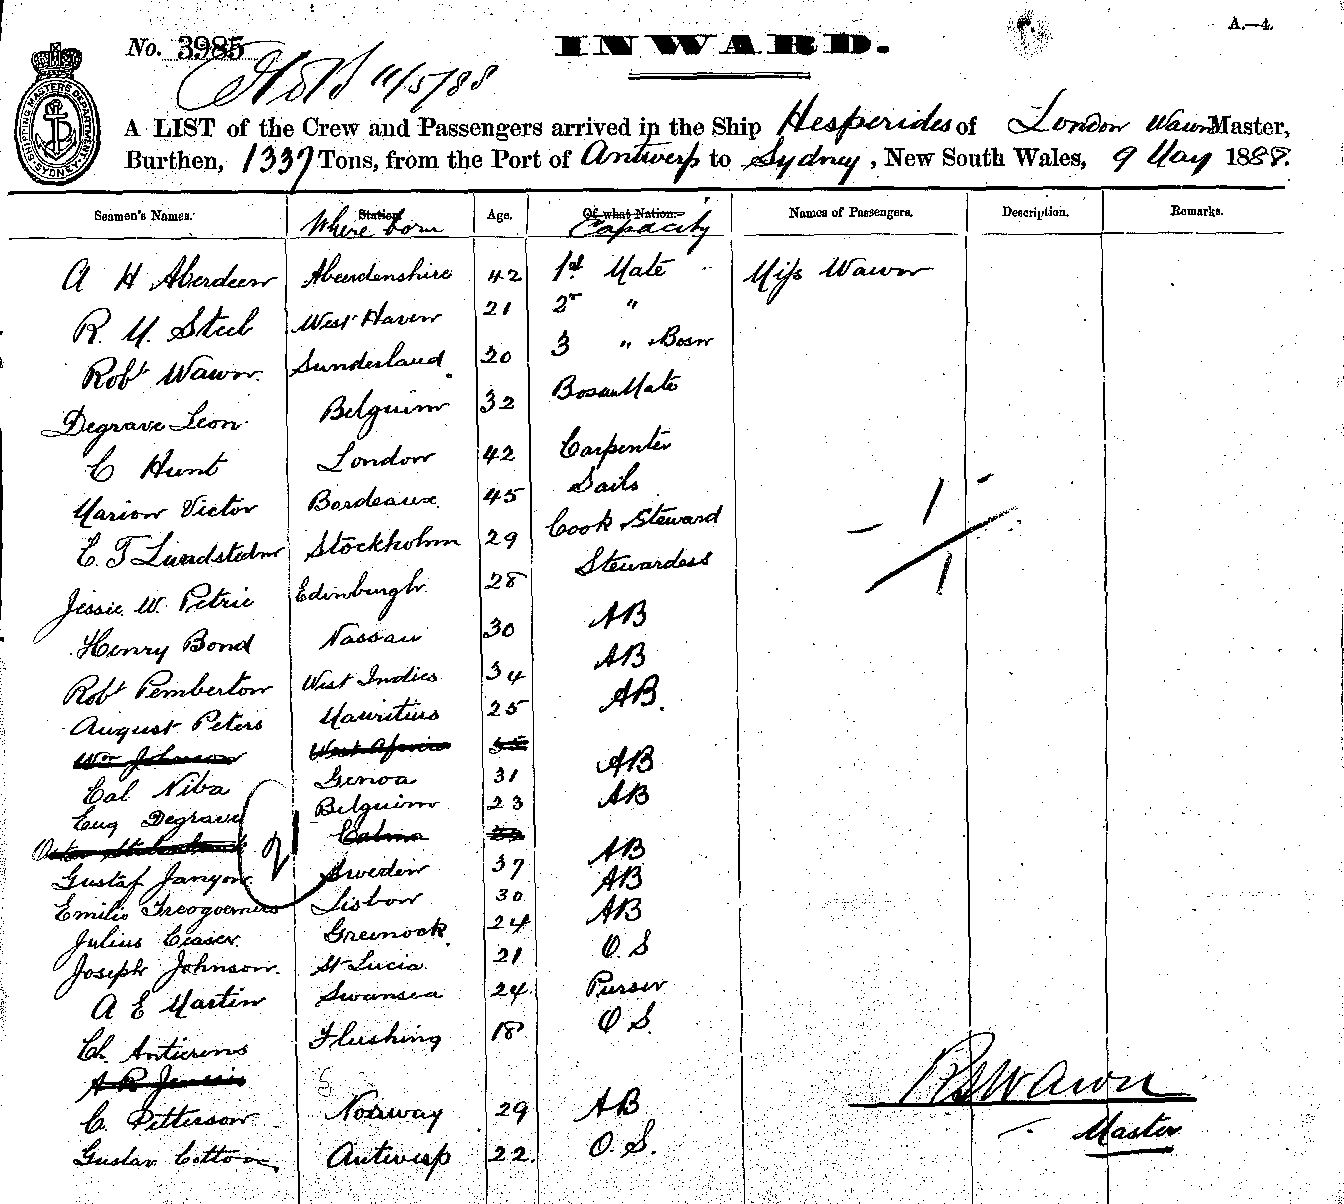 A.—4.
No. 3985
INWARD.
11/5/88
SHIPPING MASTERS DEPARTMENT SYDNEY
A LIST of the Crew and Passengers arrived in the Ship Hesperides of London Wawn Master,
Burthen, 1337 Tons, from the Port of Antwerp to Sydney, New South Wales, 9 May 1888.
Seamen's Names. Station Where born Age. Of what Nation. Capacity Names of Passengers. Description. Remarks.
A H Aberdeen Aberdenshire 42 1st Mate Miss Wawn
R. M. Steel West Haven 21 2nd "
Robt Wawn. Sunderland 20 3 " Bosn
Degrave Leon Belguim 32 Bosun Mate
C Hunt London 42 Carpenter
Marion Victor Bordeaux 45 Sails
E. T Lundstedm Stockholm 29 Cook Steward
Jessie W. Petrie Edinburgh 28 Stewardess
Henry Bond Nassau 30 AB
Robt Pemberton West Indies 34 AB
August Peters Mauritius 25 AB.
Wm Johnson West Africa
Cal Niba Genoa 31 AB
Eug Degrave Belguim 23 AB
Gustaf Janyon Sweden 37 AB
Emilio Lisbon 30 AB
Julius Ceaser Greenock 24 AB
Joseph Johnson. St Lucia 21 O.S
A E Martin Swansea 24 Purser
Ch. Flushing 18 O S.
A R
C. Pitterson Norway 29 AB
Gustav Antwerp 22. O. S.
1
1
R S Wawn
Master